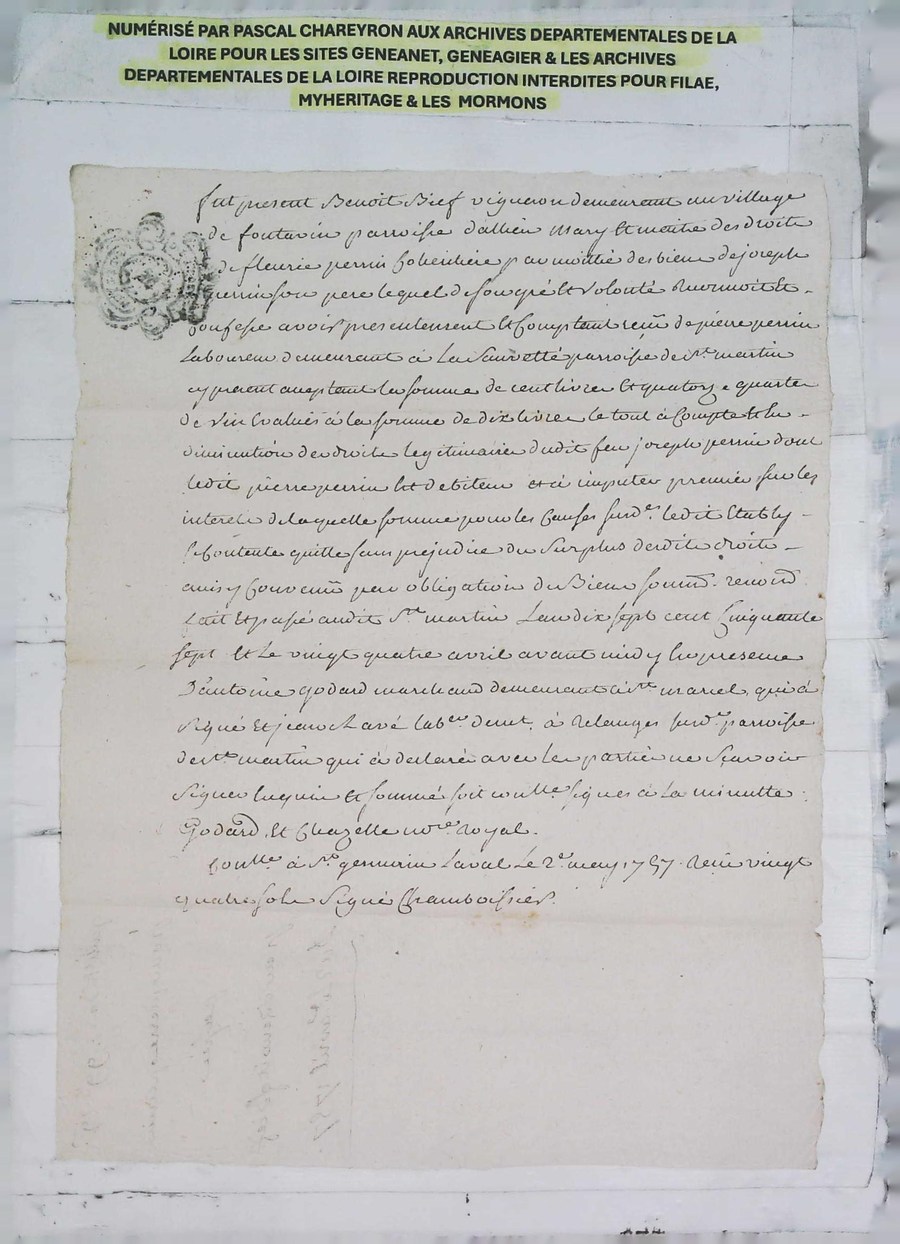 NUMÉRISÉ PAR PASCAL CHAREYRON AUX ARCHIVES DEPARTEMENTALES DE LA
LOIRE POUR LES SITES GENEANET, GENEAGIER & LES ARCHIVES
DEPARTEMENTALES DE LA LOIRE REPRODUCTION INTERDITES POUR FILAE,
MYHERITAGE & LES MORMONS
fut present Benoit Bief vigneron demeurant au village
de fontavin parroisse d'allieu mary Et maitre des droits
de fleurie perrin Coheritière par moittié des biens de joseph
perrin son pere lequel de son gré Et volonté Reconnoit Et
Confesse avoir presentement Et Comptant reçu de pierre perrin
Laboureur demeurant à La Sauvetté parroisse de St. martin
cy present acceptant la somme de cent livres Et quatorze quartes
de vin Evalués à la somme de dix livres le tout à Compte Et En
diminution des droits legitimaires dudit feu joseph perrin dont
ledit pierre perrin Est debiteur et à imputer premier sur les
interets de laquelle somme pour les Causes susdes. ledit Etably
Se Contente quitte sans prejudice du Surplus desdits droits
ainsy Convenu par obligation de Biens soumd. renond.
fait Et passé audit St. martin L'an dix sept cent Cinquante
sept Et Le vingt quatre avril avant midy En presence
D'antoine Godard marchand demeurant à St. marcel qui a
signé Et jean Lavé labr. demt. à Relanges susde. parroisse
de St. martin qui a declaré avec les parties ne sçavoir
signer Enquis Et sommé soit conllé. signés à La minutte
Godard, Et Chazelle nore. Royal.
Conllé. à St. germain Laval Le 2e. may 1757. Reçu vingt
quatre sols Signé Chamboissier.